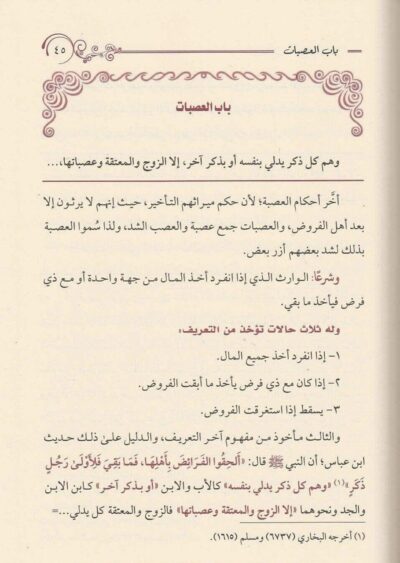 باب العصبات
٤٥
باب العصبات
وهم كل ذكر يدلي بنفسه أو بذكر آخر، إلا الزوج والمعتقة وعصباتها،...
أخَّر أحكام العصبة؛ لأن حكم ميراثهم التأخير، حيث إنهم لا يرثون إلا
بعد أهل الفروض، والعصبات جمع عصبة والعصب الشد، ولذا سُموا العصبة
بذلك لشد بعضهم أزر بعض.
وشرعًا: الوارث الذي إذا انفرد أخذ المال من جهة واحدة أو مع ذي
فرض فيأخذ ما بقي.
وله ثلاث حالات تؤخذ من التعريف:
١- إذا انفرد أخذ جميع المال.
٢- إذا كان مع ذي فرض يأخذ ما أبقت الفروض.
٣- يسقط إذا استغرقت الفروض.
والثالث مأخوذ من مفهوم آخر التعريف، والدليل على ذلك حديث
ابن عباس؛ أن النبي ﷺ قال: «أَلحِقُوا الفَرَائِضَ بِأَهْلِهَا، فَمَا بَقِيَ فَلِأَوْلَىٰ رَجُلٍ
ذَكَرٍ»(١) «وهم كل ذكر يدلي بنفسه» كالأب والابن «أو بذكر آخر» كابن الابن
والجد ونحوهما «إلا الزوج والمعتقة وعصباتها» فالزوج والمعتقة كل يدلي...=
(١) أخرجه البخاري (٦٧٣٧) ومسلم (١٦١٥).